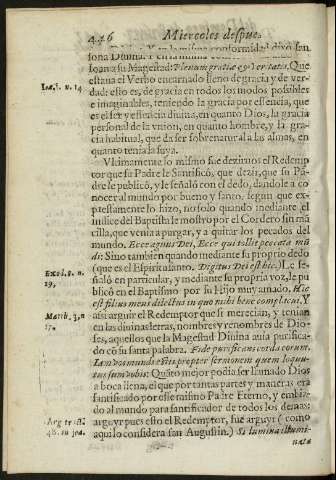 446 Miercoles despue.
sona Diuina.
Ioan a su Magestad: Plenum gratiæ & veritatis. Que
estaua el Verbo encarnado lleno de gracia y de ver-
dad: esto es, de gracia en todos los modos possibles
e imaginables, teniendo la gracia por essencia, que
es el ser y essencia diuina, en quanto Dios, la gracia
personal de la vnion, en quanto hombre, y la gra-
cia habitual, que da ser sobrenatural a las almas, en
quanto tenia la suya.
Vltimamente lo mismo fue dezirnos el Redemp
tor que su Padre le Santificó, que dezir, que su Pa-
dre le publicó, y le señaló con el dedo, dandole a co
nocer al mundo por bueno y santo, segun que ex-
pressamente lo hizo, no solo quando mediante el
indice del Baptista le mostro por el Cordero sin má
cilla, que venia a purgar, y a quitar los pecados del
mundo. Ecce agnus Dei, Ecce qui tollit peccata mū
di: Sino tambien quando mediante su proprio dedo
(que es el Espiritu santo. Digitus Dei est hic.) Le se-
ñaló en particular, y mediante su propria voz, le pu
blicó en el Baptismo por su Hijo muy amado. Hic
est filius meus dilectus in quo mihi bene complacui. Y
assi arguir el Redemptor que si merecian, y tenian
en las diuinas letras, nombres y renombres de Dio-
ses, aquellos que la Magestad Diuina auia purifica-
do cō su santa palabra. Fide purificans corda eorum.
Iam vos mundi estis propter sermonem quem loquu-
tus sum vobis: Quāto mejor podia ser llamado Dios
a boca llena, el que por tantas partes y maneras era
santificado por esse mismo Padre Eterno, y embia-
do al mundo para santificador de todos los demas:
arguyr pues esto el Redemptor, fue arguyr (como
aqui lo considera san Augustin.) Si lumina illumi-
nata
Ioā. 1. n. 14
Exod. 8. n.
19.
Matth. 3. n
17.
Aug tract.
48. in Ioā.